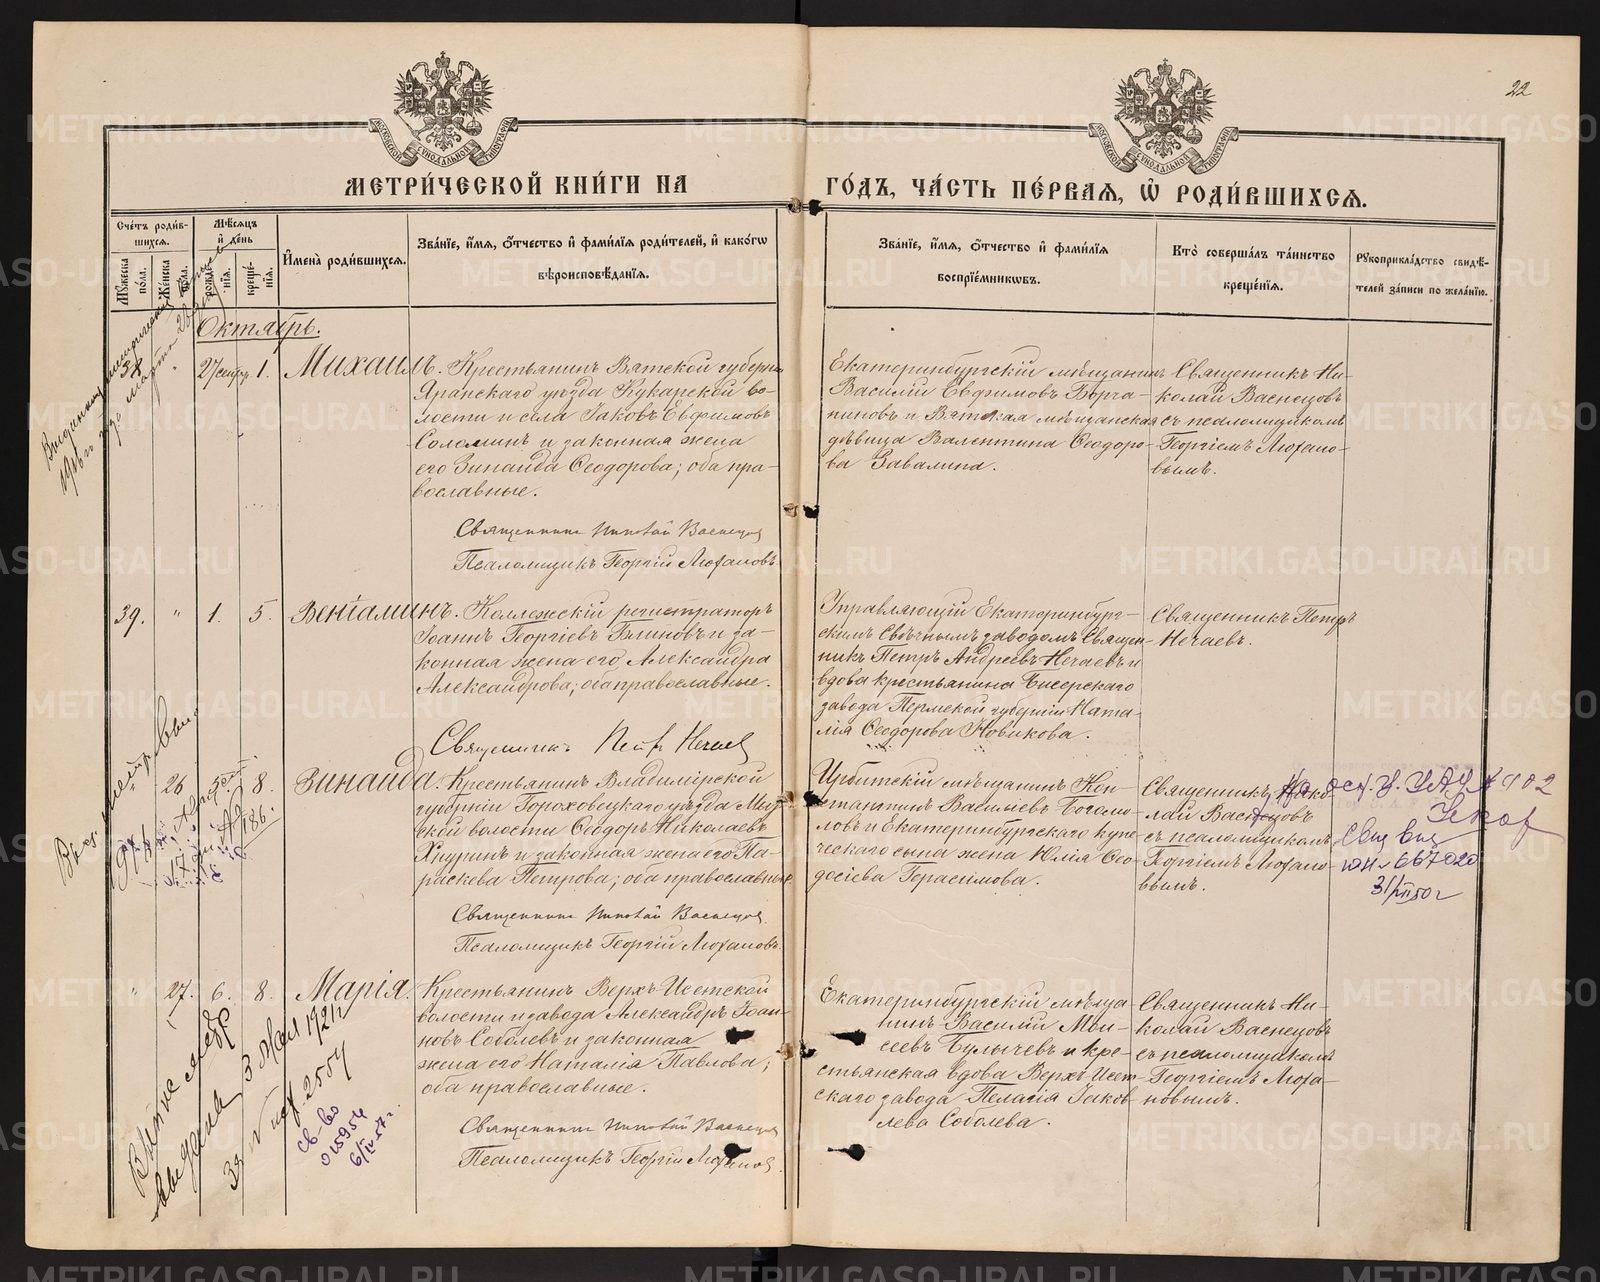 22
МОСКОВСКОЙ СѴНОДАЛЬНОЙ ТИПОГРАФІИ
МОСКОВСКОЙ СѴНОДАЛЬНОЙ ТИПОГРАФІИ
МЕТРИ́ЧЕСКОЙ КНИ́ГИ НА
ГО́ДЪ, ЧА́СТЬ ПЕ́РВАЯ, Ѽ РОДИ́ВШИХСЯ.
Сче́тъ роди́в-
шихся.
Мѣ́сяцъ
и҆ де́нь
Му́жеска
по́ла.
Же́нска
по́ла.
рожде́-
нїя.
креще́-
нїя.
И҆мена̀ роди́вшихся.
Зва́нїе, и҆́мя, ѻ҆́тчество и҆ фами́лїя роди́телей, и҆ како́гѡ
вѣроисповѣ́данїя.
Зва́нїе, и҆́мя, ѻ҆́тчество и҆ фами́лїя
воспрїе́мникѡвъ.
Кто̀ соверша́лъ та́инство
креще́нїя.
Рꙋкоприкла́дство свидѣ́-
телей за́писи по жела́нїю.
Октябрь.
38
"
27 сентр.
1.
Михаилъ.
Крестьянинъ Вятской губерніи
Яранскаго уѣзда Кукарской во-
лости и села Іаковъ Евфимовъ
Соломинъ и законная жена
его Зинаида Ѳеодорова; оба пра-
вославные.
Священникъ Николай Васнецов
Псаломщикъ Георгій Люхановъ
Екатеринбургскій мѣщанинъ
Василій Евфимовъ Борча-
ниновъ и Вятская мѣщанская
дѣвица Валентина Ѳеодоро-
ва Завалина.
Священникъ Ни-
колай Васнецовъ
съ псаломщикомъ
Георгіемъ Люхано-
вымъ.
39.
"
1.
5.
Веніаминъ.
Коллежскій регистраторъ
Іоаннъ Георгіевъ Блиновъ и за-
конная жена его Александра
Александрова; оба православные.
Священникъ Петр Нечаев
Управляющій Екатеринбург-
скимъ Свѣчнымъ заводомъ Священ-
никъ Петръ Андреевъ Нечаевъ и
вдова крестьянина Бисерскаго
завода Пермской губерніи Ната-
лія Ѳеодорова Новикова.
Священникъ Петръ
Нечаевъ.
"
26
5
8.
Зинаида.
Крестьянинъ Владимірской
губерніи Гороховецкаго уѣзда Мыт-
ской волости Ѳеодоръ Николаевъ
Хнуринъ и законная жена его Па-
раскева Петрова; оба православные
Священникъ Николай Васнецов
Псаломщикъ Георгій Люхановъ.
Ирбитскій мѣщанинъ Кон-
стантинъ Василіевъ Богомо-
ловъ и Екатеринбургскаго купе-
ческаго сына жена Юлія Ѳео-
досіева Герасимова.
Священникъ Нико-
лай Васнецовъ
съ псаломщикомъ
Георгіемъ Люхано-
вымъ.
31/VII 50 г
"
27.
6.
8.
Марія.
Крестьянинъ Верхъ-Исетской
волости и завода Александръ Іоан-
новъ Соболевъ и законная
жена его Наталія Павлова;
оба православные.
Священникъ Николай Васнецов
Псаломщикъ Георгій Люханов.
Екатеринбургскій мѣща-
нинъ Василій Мои-
сеевъ Булычевъ и кре-
стьянская вдова Верхъ-Исет-
скаго завода Пелагія Іаков-
лева Соболева.
Священникъ Ни-
колай Васнецовъ
съ псаломщикомъ
Георгіемъ Люха-
новымъ.
3 мая 1921 г
За № 2554
Св-во
015954
6/IV 57 г.